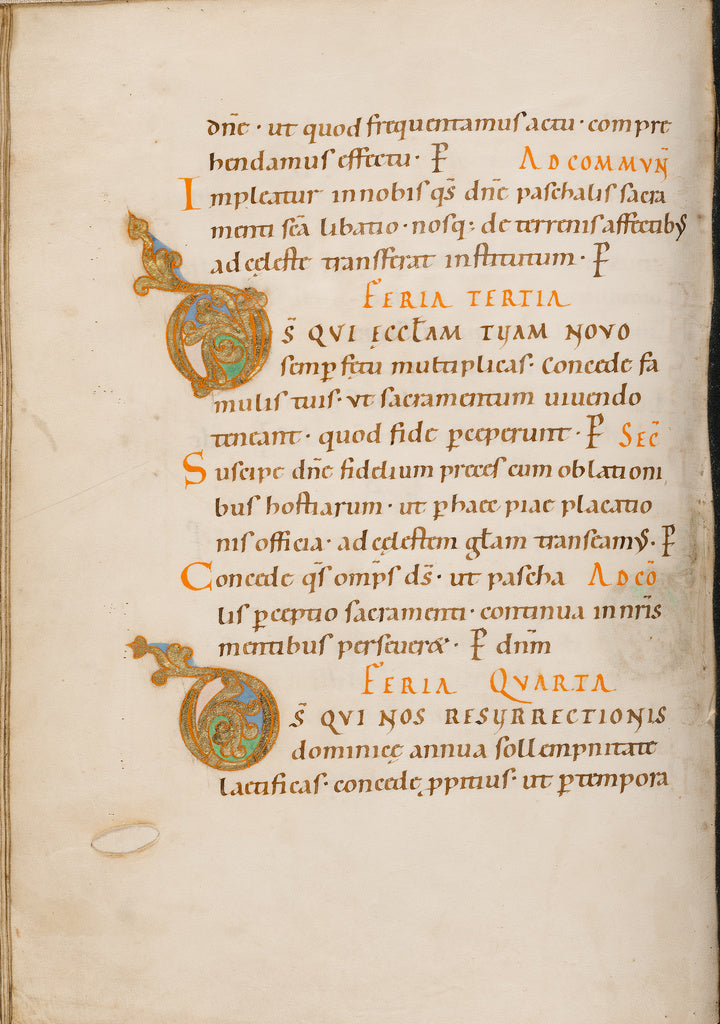 dn̄e · ut quod frequentamus actu · compre
hendamus effectu · P̄ AD COMMVN̄
Impleatur in nobis qs̄ dn̄e paschalis sacra
menti sc̄a libatio · nosq; de terrenis affectibꝰ
ad cęleste transferat institutum · P̄
FERIA TERTIA
D̄S QVI ECCL̄AM TVAM NOVO
semꝑ fetu multiplicas · Concede fa
mulis tuis · vt sacramentum uiuendo
teneant · quod fide ꝑceperunt · P̄ SEC̄
Suscipe dn̄e fidelium preces cum oblationi
bus hostiarum · ut ꝑ haec piae placatio
nis officia · ad cęlestem gl̄am transeamꝰ · P̄
Concede qs̄ omp̄s ds̄ · ut pascha AD CŌ
lis ꝑceptio sacramenti · continua in nr̄is
mentibus perseuer& · P̄ dn̄m
FERIA QVARTA
D̄S QVI NOS RESVRRECTIONIS
dominicę annua sollempnitate
laetificas · concede ꝓpitius · ut ꝑ tempora